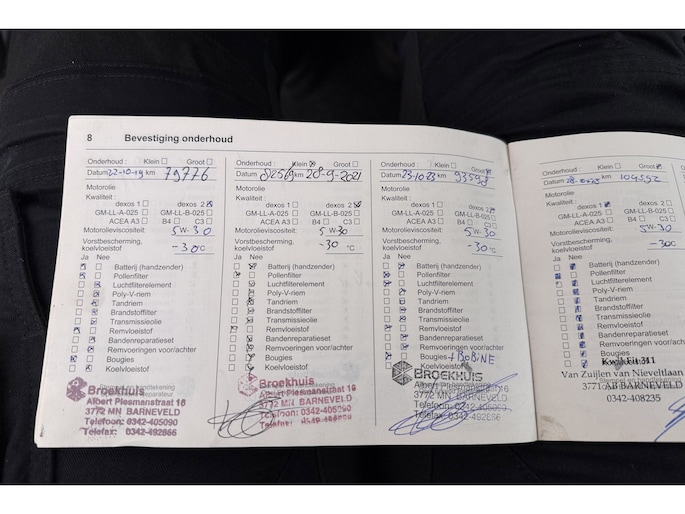 8 Bevestiging onderhoud
Onderhoud : Klein Groot
Datum 22-10-19 km 79776
Motorolie
Kwaliteit :
dexos 1 dexos 2
GM-LL-A-025 GM-LL-B-025
ACEA A3 B4 C3
Motorolieviscositeit: 5W-30
Vorstbescherming,
koelvloeistof -30°C
Ja Nee
Batterij (handzender)
Pollenfilter
Luchtfilterelement
Poly-V-riem
Tandriem
Brandstoffilter
Transmissieolie
Remvloeistof
Bandenreparatieset
Remvoeringen voor/achter
Bougies
Koelvloeistof
Broekhuis
Albert Plesmanstraat 16
3772 MN BARNEVELD
Telefoon: 0342-405090
Telefax: 0342-492866
Onderhoud : Klein Groot
Datum km 28-9-2021
Motorolie
Kwaliteit :
dexos 1 dexos 2
GM-LL-A-025 GM-LL-B-025
ACEA A3 B4 C3
Motorolieviscositeit: 5W-30
Vorstbescherming,
koelvloeistof -30 °C
Ja Nee
Batterij (handzender)
Pollenfilter
Luchtfilterelement
Poly-V-riem
Tandriem
Brandstoffilter
Transmissieolie
Remvloeistof
Bandenreparatieset
Remvoeringen voor/achter
Bougies
Koelvloeistof
Broekhuis
Albert Plesmanstraat 16
3772 MN BARNEVELD
Telefoon: 0342-405090
Telefax: 0342-492866
Onderhoud : Klein Groot
Datum 23-10 23 km 93598
Motorolie
Kwaliteit :
dexos 1 dexos 2
GM-LL-A-025 GM-LL-B-025
ACEA A3 B4 C3
Motorolieviscositeit: 5W-30
Vorstbescherming,
koelvloeistof -30 °C
Ja Nee
Batterij (handzender)
Pollenfilter
Luchtfilterelement
Poly-V-riem
Tandriem
Brandstoffilter
Transmissieolie
Remvloeistof
Bandenreparatieset
Remvoeringen voor/achter
Bougies + BOBINE
Koelvloeistof
BROEKHUIS
Albert Plesmanstraat 16
3772 MN BARNEVELD
Telefoon: 0342-405090
Telefax: 0342-492866
Onderhoud : Klein Groot
Datum km
Motorolie
Kwaliteit :
dexos 1
GM-LL-A-025
ACEA A3
Motorolieviscositeit:
Vorstbescherming,
koelvloeistof
Ja Nee
Batterij (handzender)
Pollenfilter
Luchtfilterelement
Poly-V-riem
Tandriem
Brandstoffilter
Transmissieolie
Remvloeistof
Bandenreparatieset
Remvoeringen voor/achter
Bougies
Kwik Fit 311
Van Zuijlen van Nieveltlaan
3771 AB BARNEVELD
0342-408235